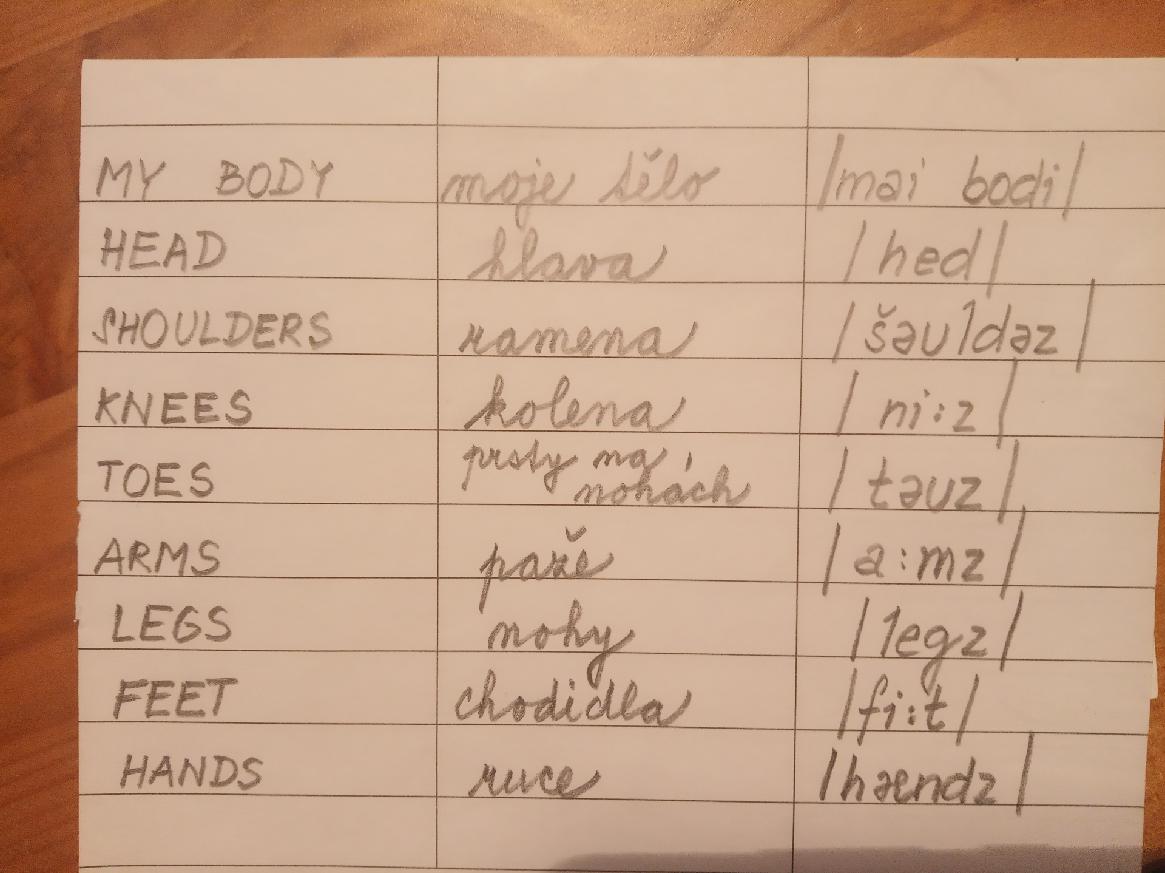 MY BODY moje tělo /mai bodi/
HEAD hlava /hed/
SHOULDERS ramena /šəuldəz/
KNEES kolena /ni:z/
TOES prsty na nohách /təuz/
ARMS paže /a:mz/
LEGS nohy /legz/
FEET chodidla /fi:t/
HANDS ruce /hændz/